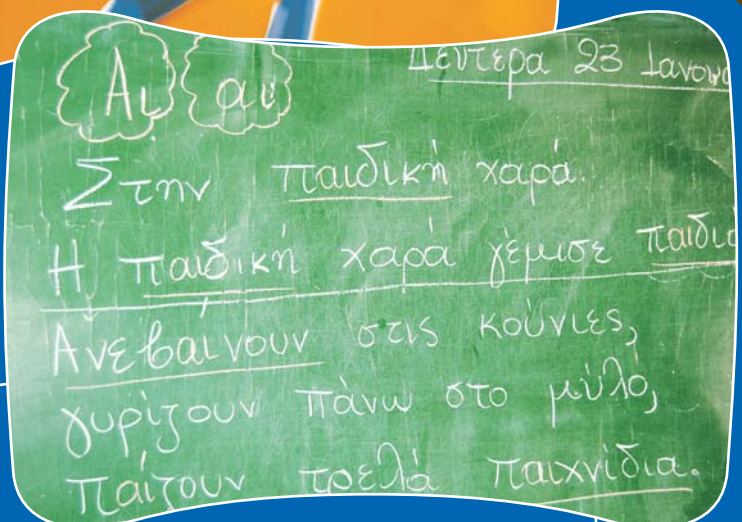 Αι αι Δευτέρα 23 Ιανου
Στην παιδική χαρά.
Η παιδική χαρά γέμισε παιδιά
Ανεβαίνουν στις κούνιες,
γυρίζουν πάνω στο μύλο,
παίζουν τρελά παιχνίδια.